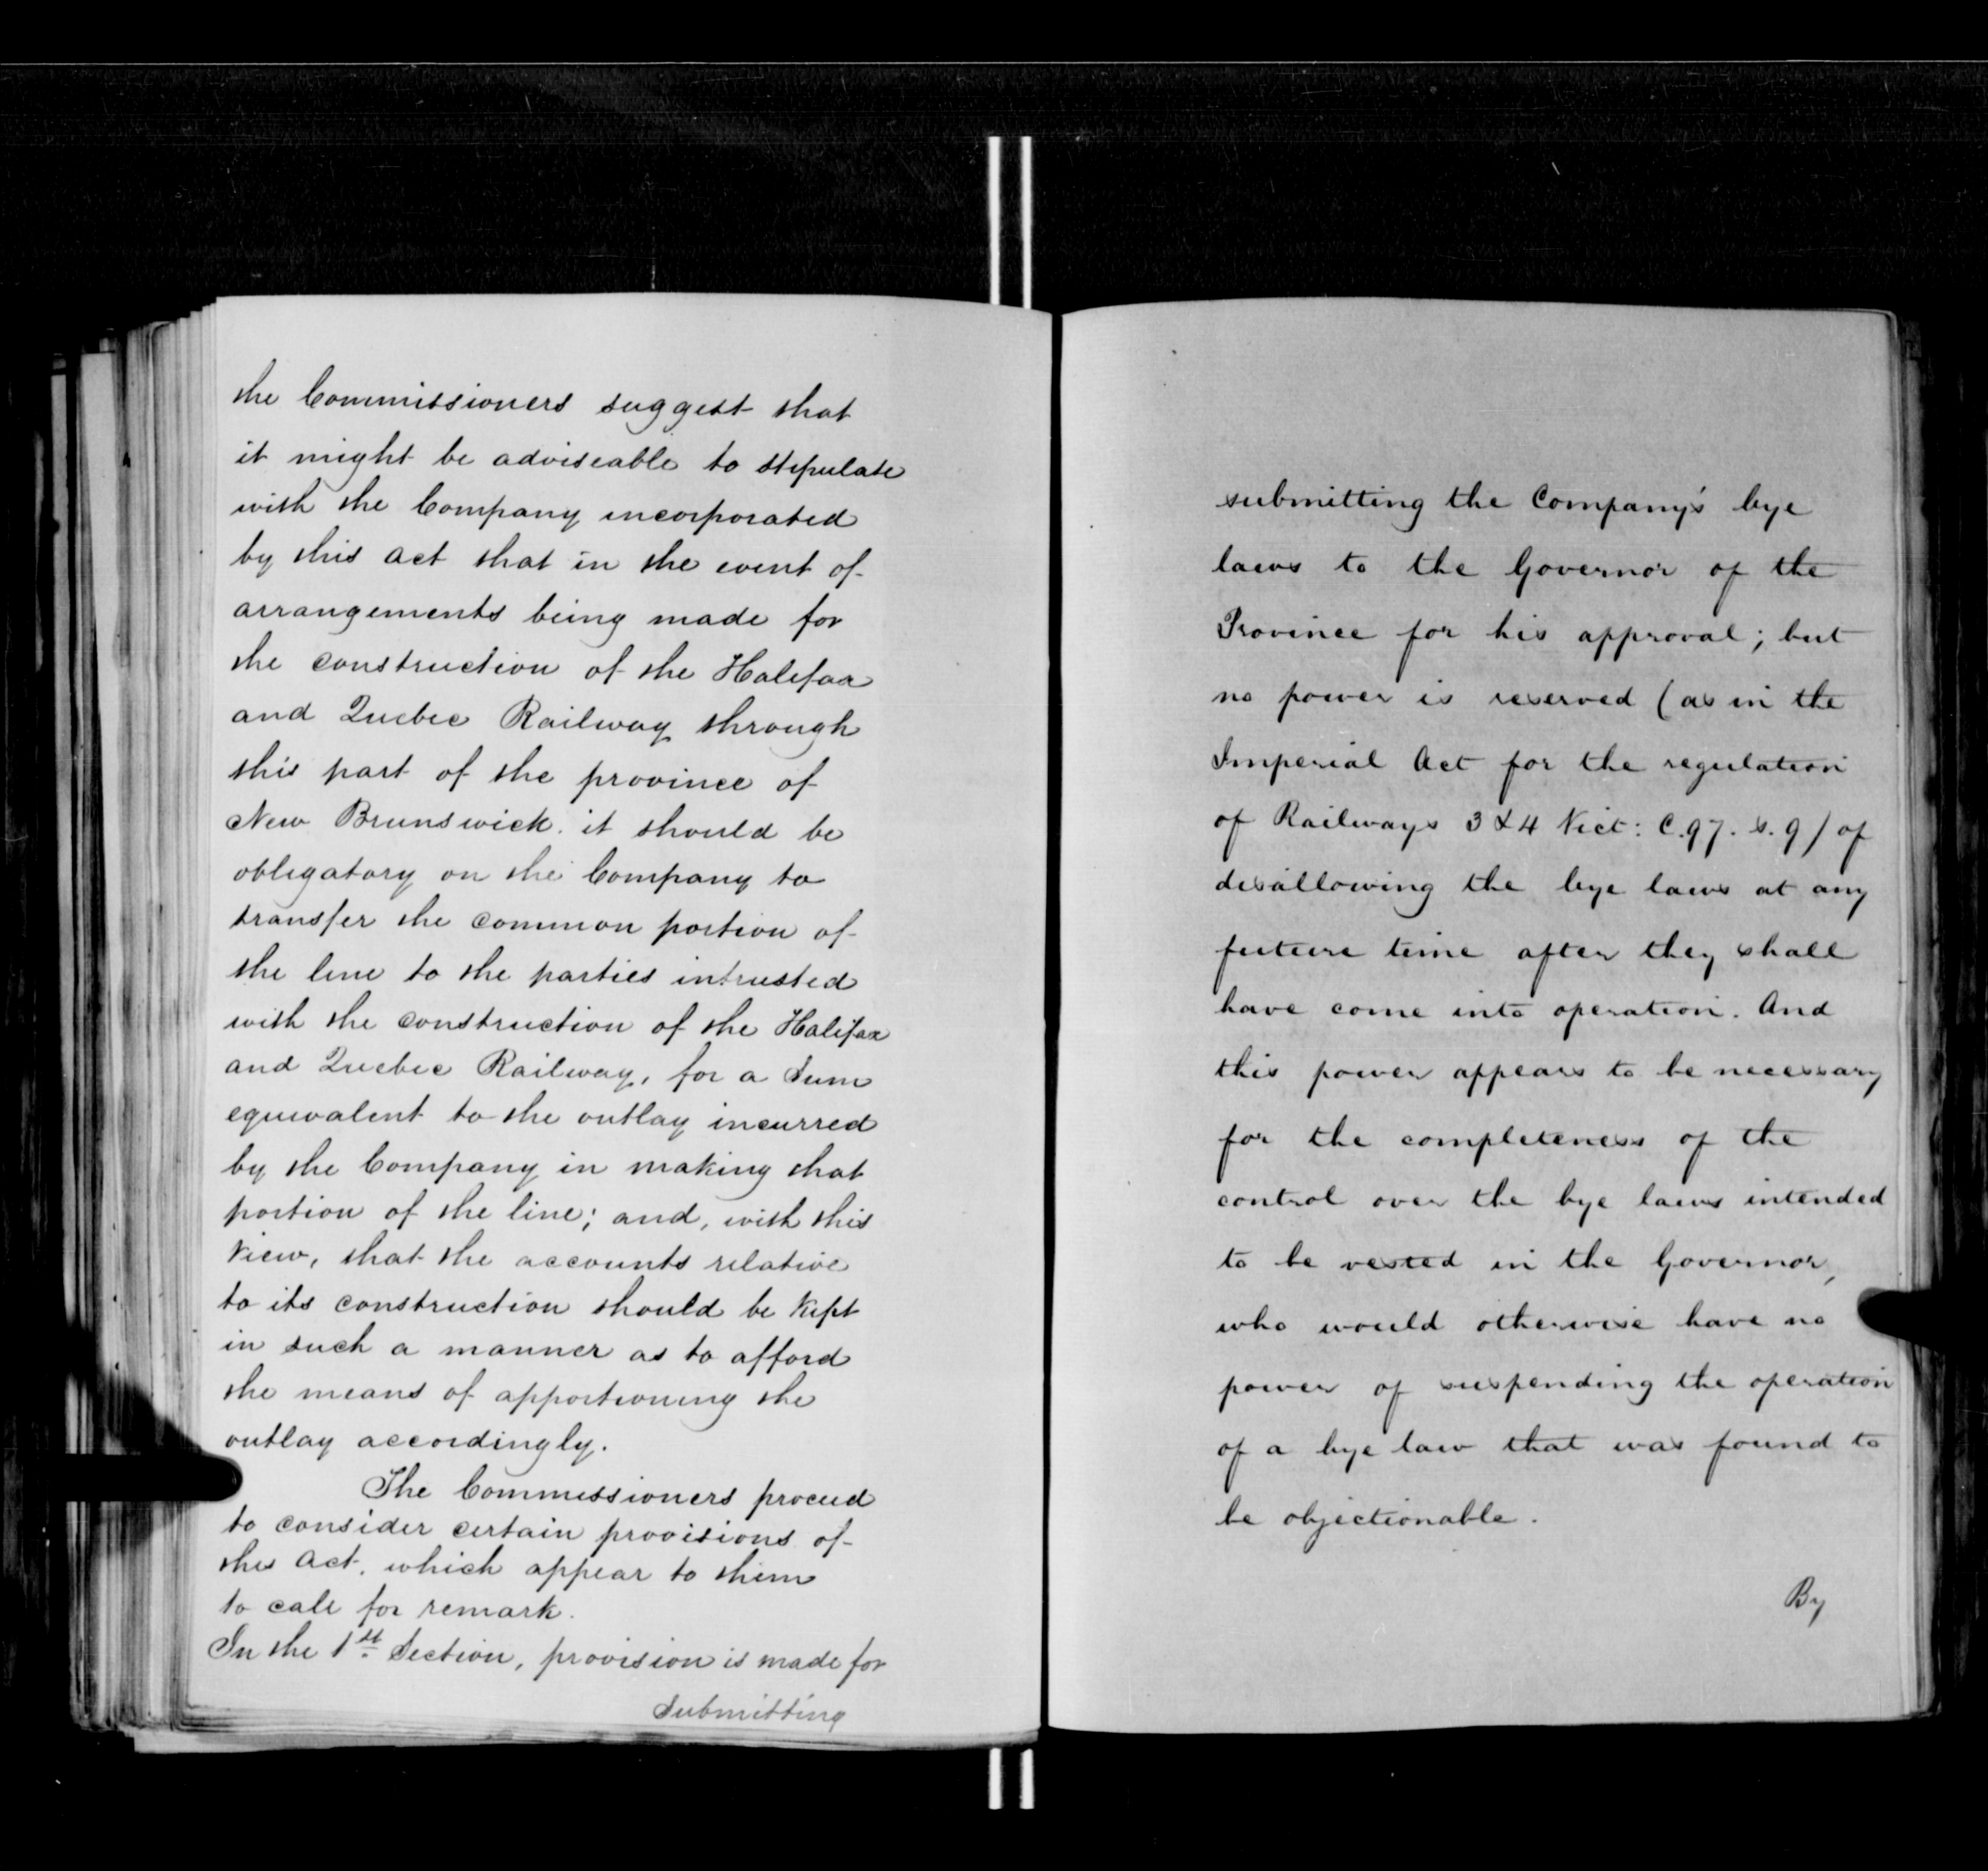 the Commissioners suggest that
it might be adviseable to stipulate
with the Company incorporated
by this Act that in the event of
arrangements being made for
the construction of the Halifax
and Quebec Railway through
this part of the province of
New Brunswick. it should be
obligatory on the Company to
transfer the common portion of
the line to the parties intrusted
with the construction of the Halifax
and Quebec Railway, for a Sum
equivalent to the outlay incurred
by the Company in making that
portion of the line; and, with this
View, that the accounts relative
to its construction should be Kept
in such a manner as to afford
the means of apportioning the
outlay accordingly.
The Commissioners proceed
to consider certain provisions of
the Act, which appear to them
to call for remark.
In the 1st Section, provision is made for
Submitting
submitting the Company's bye
laws to the Governor of the
Province for his approval; but
no power is reserved (as in the
Imperial Act for the regulation
of Railways 3 & 4 Vict: C.97. s. 9) of
disallowing the bye laws at any
future time after they shall
have come into operation. And
this power appears to be necessary
for the completeness of the
control over the bye laws intended
to be vested in the Governor,
who would otherwise have no
power of suspending the operation
of a bye law that was found to
be objectionable.
By